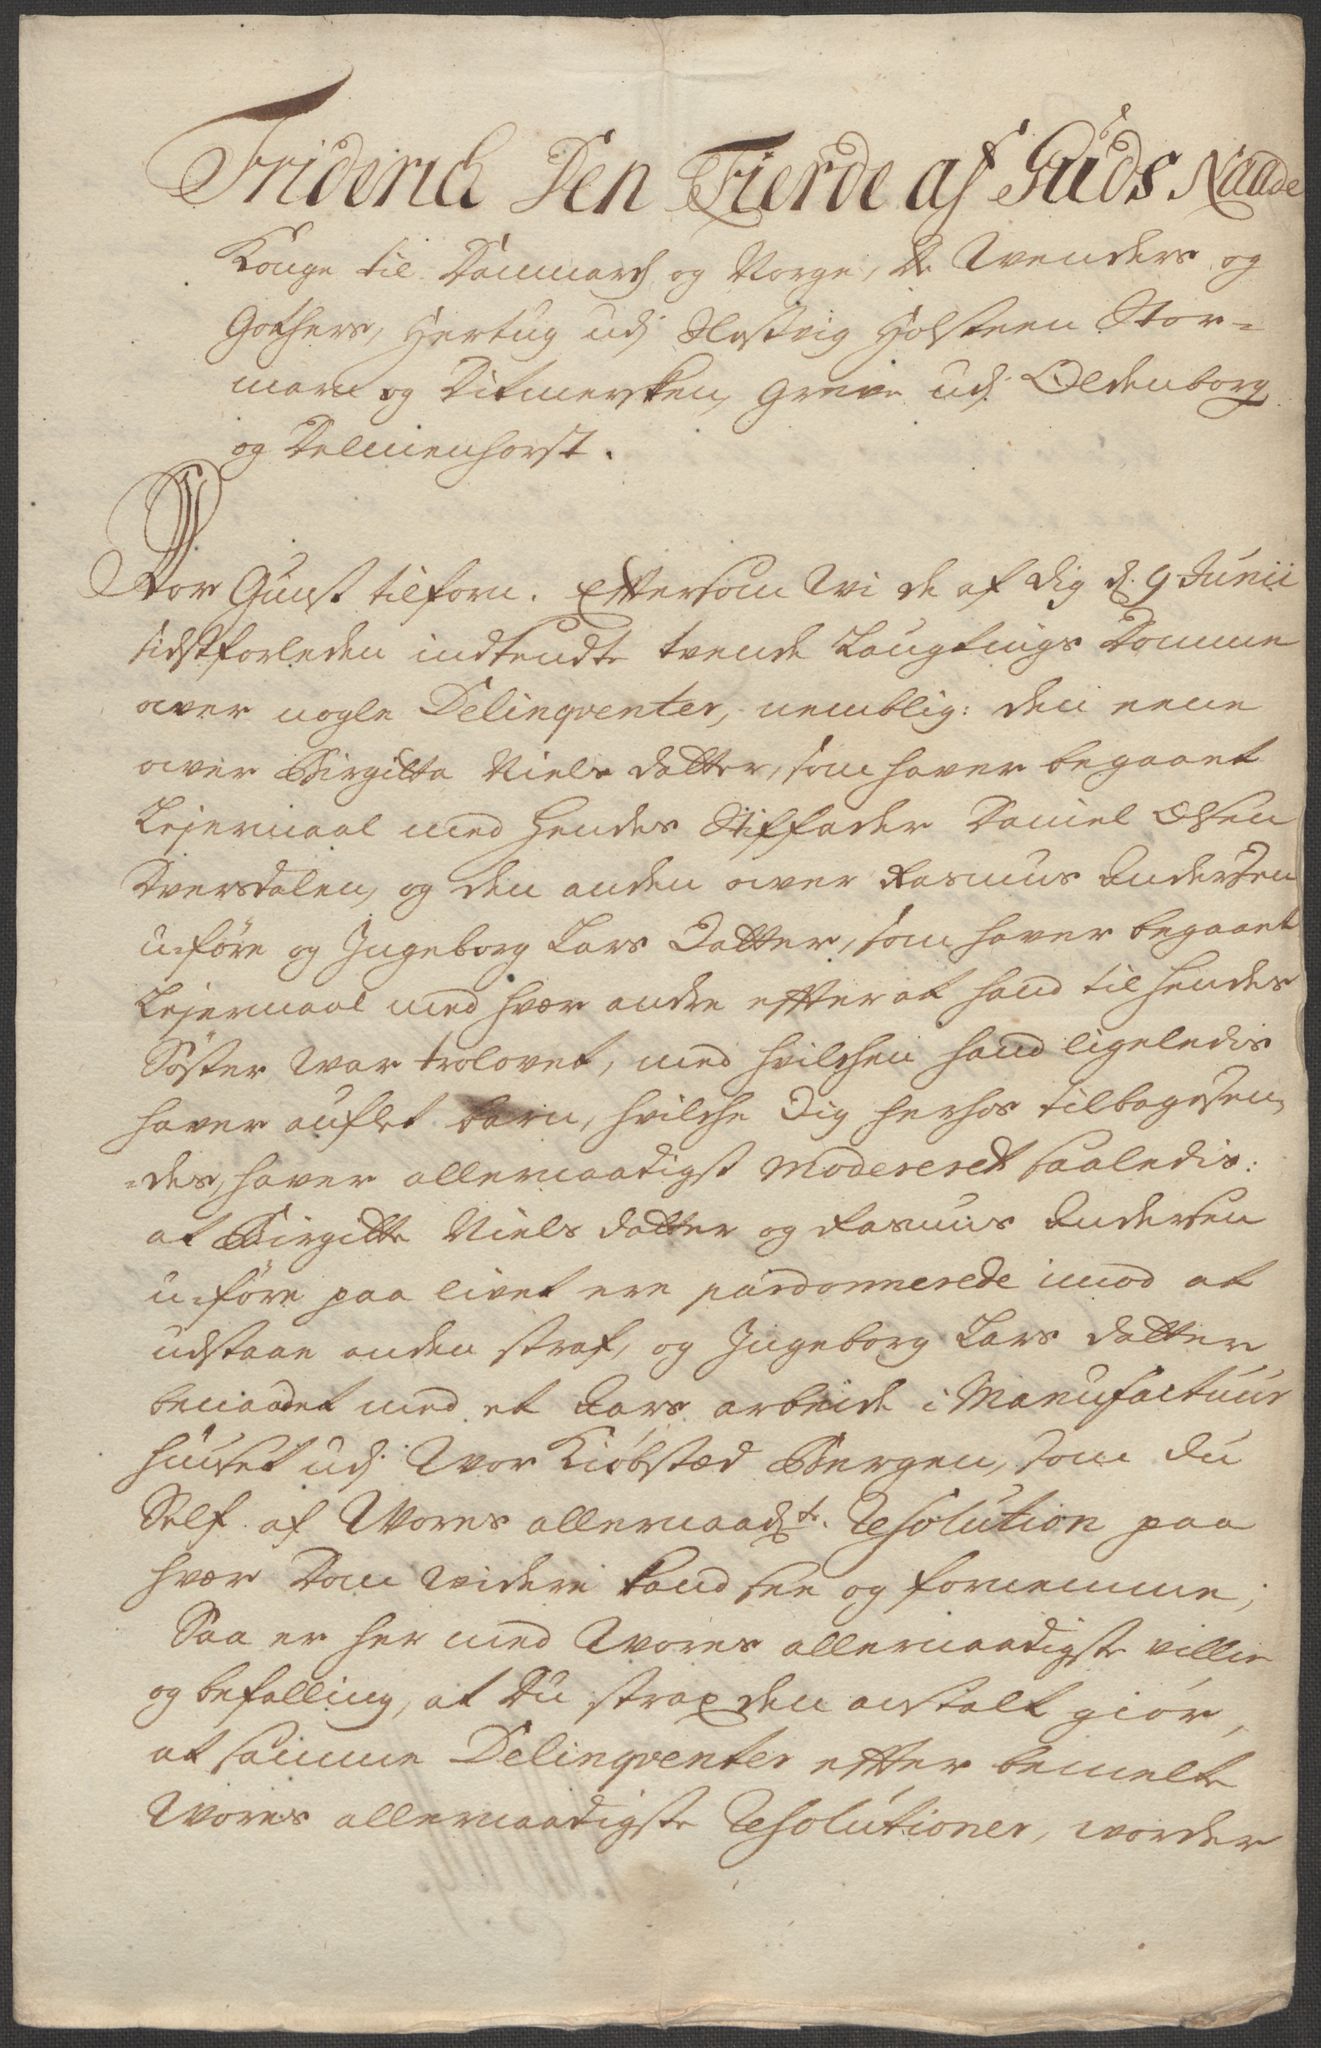 Friderich Den Fierde af Guds Naade
Konge til Danmarch og Norge, De Wenders og
Gothers, Hertug udj Slesvig Holsteen Stor-
marn og Ditmersken, Greve udj Oldenborg
og Delmenhorst.
Vor Gunst tilforn. Eftersom Wi de af dig d. 9 Junii
sidstforleden indsendte tvende Laugtings Domme
over nogle Delinqventer, nemblig: den eene
over Birgitta Niels datter, som haver begaaet
Lejermaal med hendes Stiffader Daniel Olsen
Dversdalen, og den anden over Rasmus Andersen
u-före og Ingeborg Lars Datter, som haver begaaet
Lejermaal med hver andre efter at hand til hendes
Söster war trolovet, med hvilchen hand ligeledis
haver auflet barn, hvilche Dig herhos tilbagesen-
-des, haver allernaadigst Modereret saaledis:
at Birgitte Niels datter og Rasmus Andersen
u-före paa livet ere pardonnerede imod at
udstaae anden straf, og Ingeborg Lars datter
benaadet med et Aars arbeide i Manufactuur
huuset udj Wor Kiöbstæd Bergen, som du
Self af Wores allernaadste. Resolution paa
hver Dom widere kand see og fornemme;
Saa er her med Wores allernaadigste villie
og befalling, at Du strax den anstalt giör,
at samme Delinqventer efter bemelte
Wores allernaadigste Resolutioner, worder